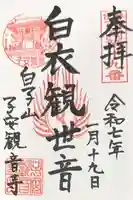 奉拝
令和七年
一月十九日
白衣観世音
白子山
子安観音寺